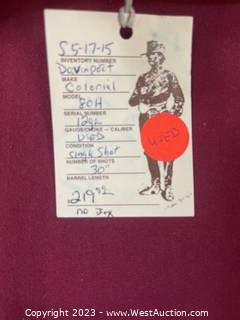 S 5-17-15
INVENTORY NUMBER
Davenport
MAKE
Colonial
MODEL
80H
SERIAL NUMBER
12ga
GAUGE/CHOKE - CALIBER
USED
CONDITION
Single Shot
NUMBER OF SHOTS
30"
BARREL LENGTH
219⁹²
no Tax
USED
© 2023 - www.WestAuction.com